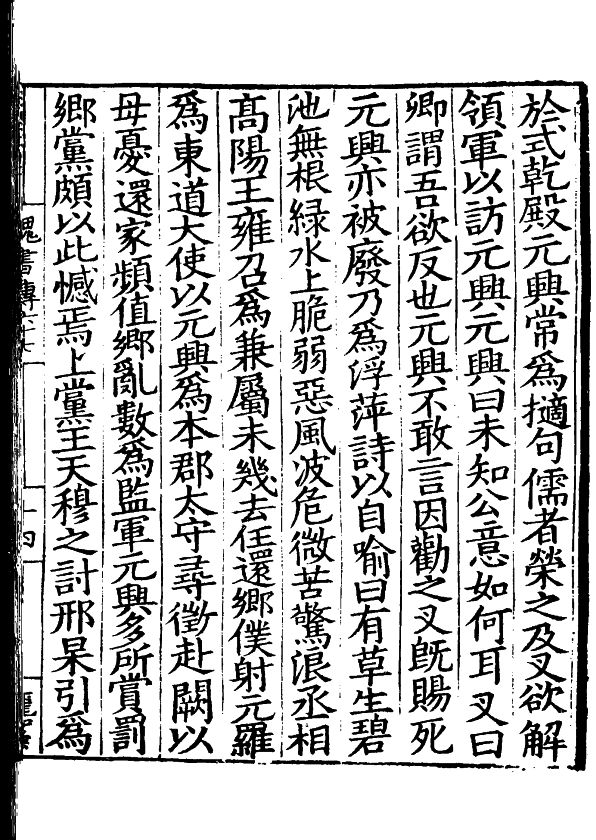 於式乾殿元興常爲擿句儒者榮之及叉欲解
領軍以訪元興元興曰未知公意如何耳叉曰
卿謂吾欲反也元興不敢言因勸之叉旣賜死
元興亦被廢乃爲浮萍詩以自喻曰有草生碧
池無根綠水上脆弱惡風波危微苦驚浪丞相
髙陽王雍召爲兼屬未幾去任還鄉僕射元羅
爲東道大使以元興爲本郡太守尋徵赴闕以
母憂還家頻值鄉亂數爲監軍元興多所賞罰
鄉黨頗以此憾焉上黨王天穆之討邢杲引爲
魏書傳六十七
十四